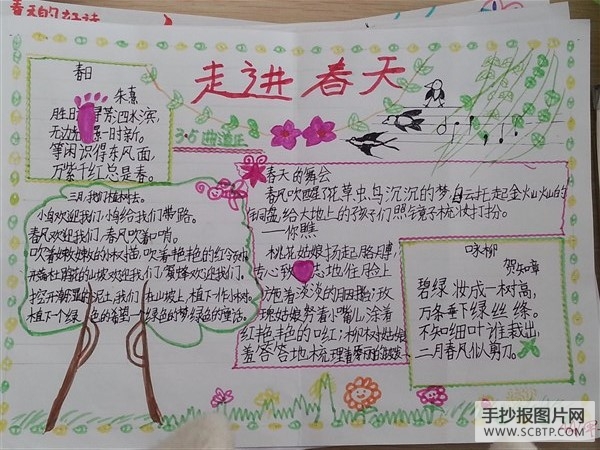 春天的好诗
走进春天
春日
朱熹
胜日 芳泗水滨,
无边光 一时新。
等闲识得东风面,
万紫千红总是春。
三月,我们植树去。
小鸟欢迎我们,小鸟给我们带路。
春风欢迎我们,春风吹着口哨。
吹着嫩嫩 的小 ,吹着艳艳的红
开满杜鹃花的山坡欢迎我们, 蜜蜂欢迎我们。
挖开潮湿的泥土,我们在山坡上,植下一 小树。
植下一个绿色的希望 绿色的梦绿色的童话。
春天的舞会
春风吹醒了花草虫鸟沉沉的梦,白云托起金灿灿的
铜盘,给大地上的孩子们照镜子梳妆打扮。
——你瞧
桃花姑娘扬起胳膊,
专心致志地往脸上
施着淡淡的胭脂;玫
瑰姑娘努着小嘴儿,涂着
红艳艳的口红;柳树姑娘
羞答答地梳理着秀丽的
咏柳
贺知章
碧绿妆成一树高,
万条垂下绿丝绦。
不知细叶谁裁出,
二月春风似剪刀。
手抄报图片网
WWW.SCBTP.COM